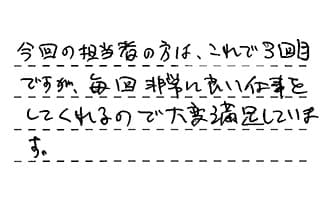 今回の担当者の方は、これで3回目
ですが、毎回非常に良い仕事を
してくれるので大変満足していま
す。